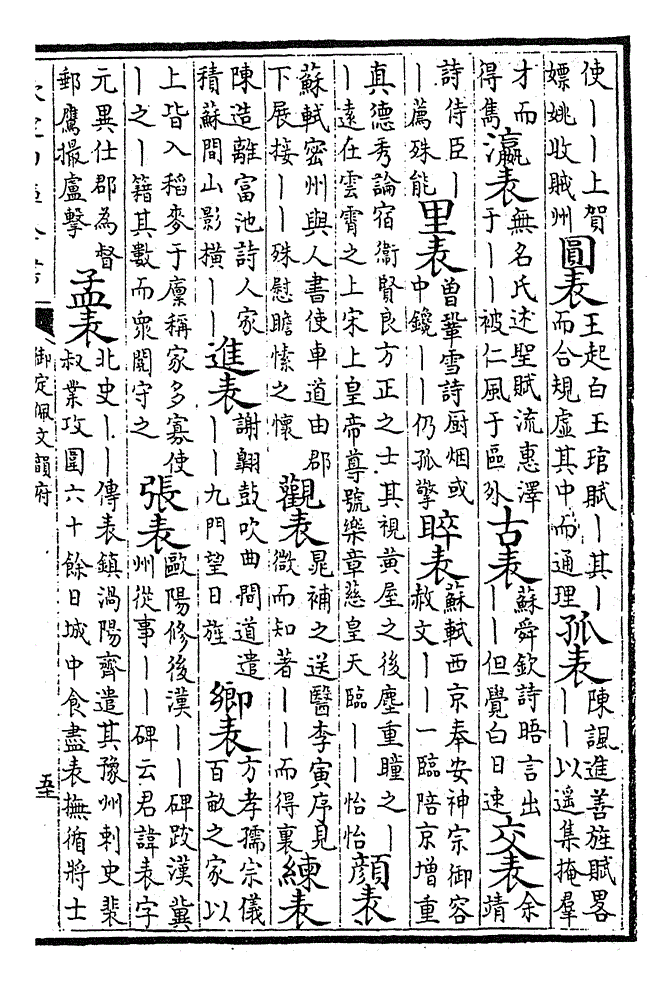 使｜｜上賀
嫖姚收賊州
圓表
王起白玉琯賦｜其｜
而合規虛其中而通理
孤表
陳諷進善旌賦畧
｜｜以遥集掩羣
才而
得雋
瀛表
無名氏述聖賦流惠澤
于｜｜被仁風于區外
古表
蘇舜欽詩晤言出
｜｜但覺白日速
交表
余
靖
詩侍臣｜
｜薦殊能
里表
曾鞏雪詩厨烟或
中鐃｜｜仍孤擎
睟表
蘇軾西京奉安神宗御容
赦文｜｜一臨陪京增重
真德秀論宿衞賢良方正之士其視黄屋之後塵重瞳之｜
｜遠在雲霄之上宋上皇帝尊號樂章慈皇天臨｜｜怡怡
顔表
蘇軾密州與人書使車道由郡
下展接｜｜殊慰瞻愫之懷
觀表
晁補之送醫李寅序見
微而知著｜｜而得裏
練表
陳造離富池詩人家
積蘇間山影横｜｜
進表
謝翺鼓吹曲間道遣
｜｜九門望日旌
鄉表
方孝孺宗儀
百畝之家以
上皆入稻麥于廩稱家多寡使
｜之｜籍其數而衆闔守之
張表
歐陽修後漢｜｜碑跋漢冀
州從事｜｜碑云君諱表字
元異仕郡為督
郵鷹撮盧擊
孟表
北史｜｜傳表鎮渦陽齊遣其豫州刺史裴
叔業攻圍六十餘日城中食盡表撫循將士
御定佩文韻府